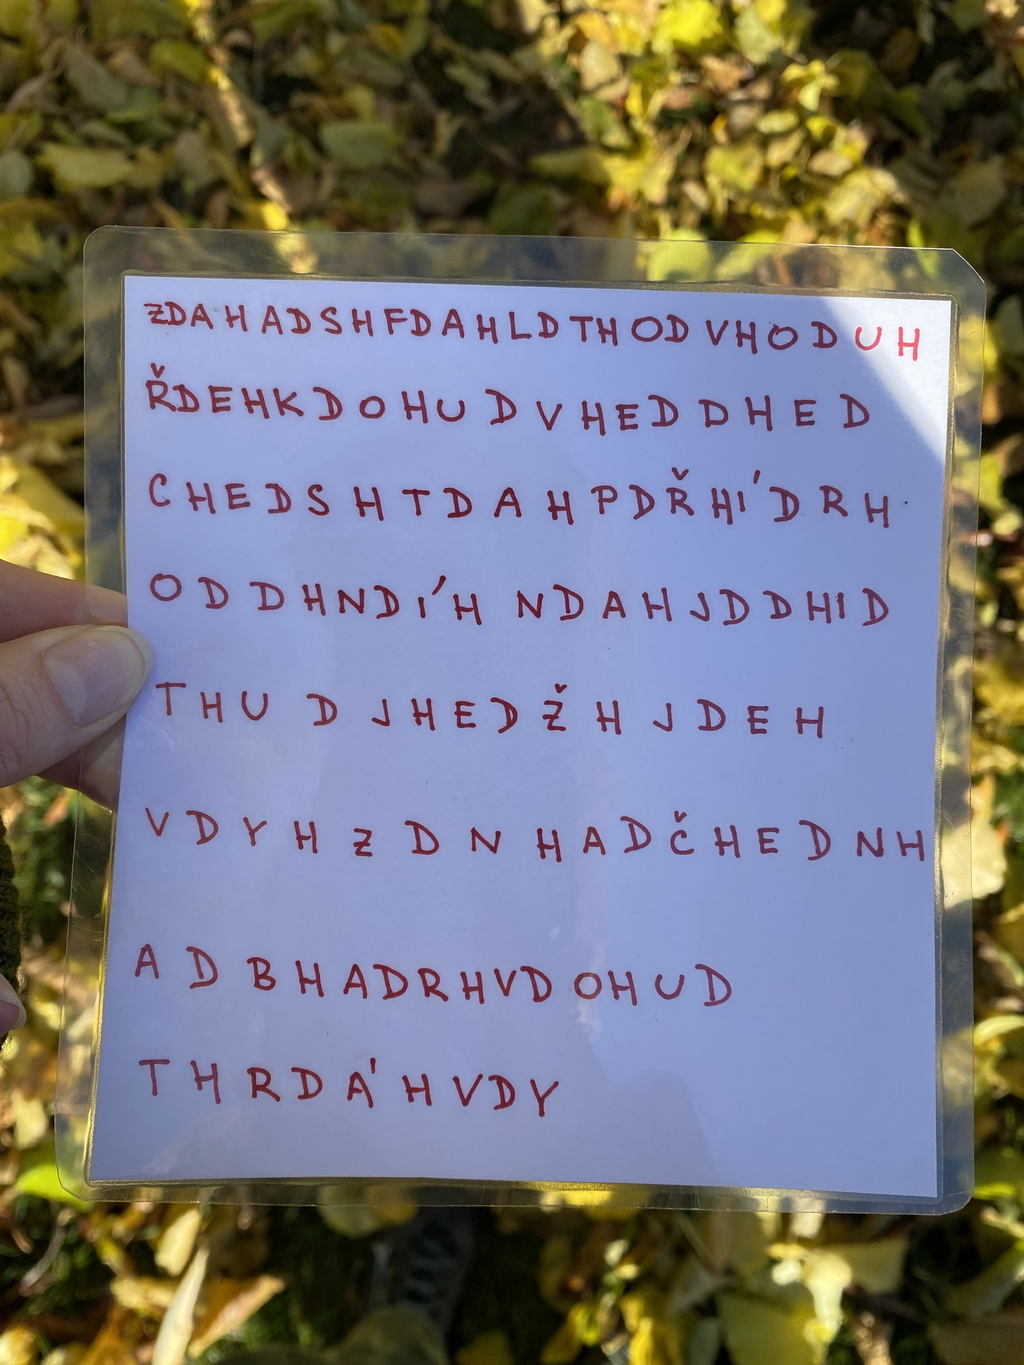 ZDAHADSHFDAHLDTHODVHODUH
ŘDEHKDOHUDVHEDDHED
CHEDSHTDAHPDŘHÍDRH
ODDHNDÍH NDAHJDDHID
THUDJHEDŽHJDEH
VDYHZDNHADČHEDNH
ADBHADRHVDOHUD
THRDÁHVDY